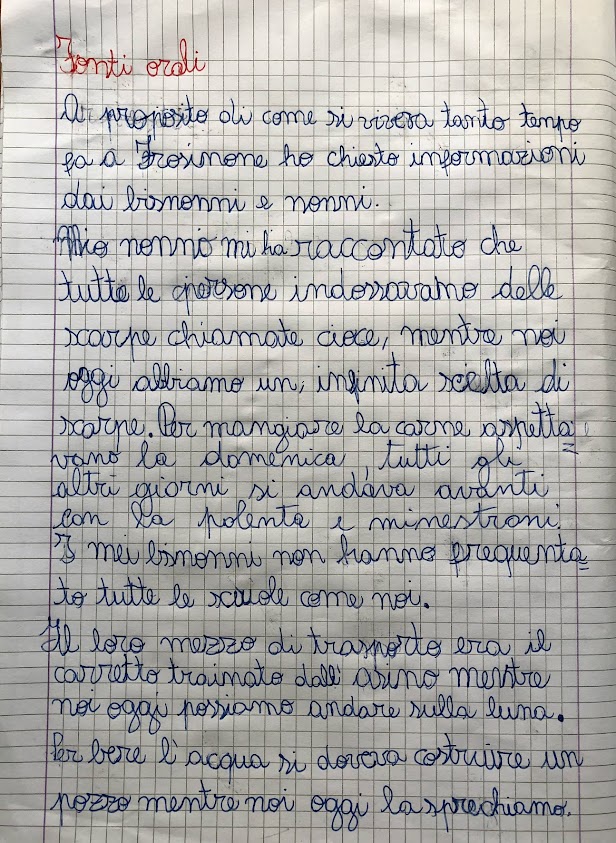 Fonti orali
A proposito di come si viveva tanto tempo
fa a Frosinone ho chiesto informazioni
dai bisnonni e nonni.
Mio nonno mi ha raccontato che
tutte le persone indossavamo delle
scarpe chiamate cioce, mentre noi
oggi abbiamo un, infinita scelta di
scarpe. Per mangiare la carne aspetta=
vano la domenica, tutti gli
altri giorni si andava avanti
con la polenta e minestroni.
I miei bisnonni non hanno frequenta=
to tutte le scuole come noi.
Il loro mezzo di trasporto era il
carretto trainato dall'asino mentre
noi oggi possiamo andare sulla luna.
Per bere l'acqua si doveva costruire un
pozzo mentre noi oggi la sprechiamo.